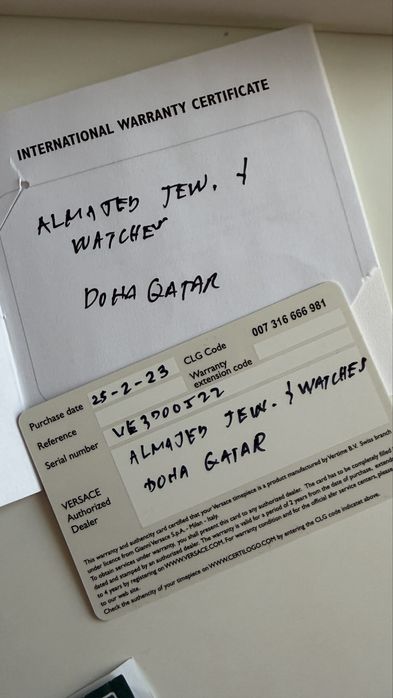 INTERNATIONAL WARRANTY CERTIFICATE
ALMAJED JEW. &
WATCHES
DOHA QATAR
Purchase date 25-2-23 CLG Code 007 316 666 981
Reference Warranty extension code
Serial number VE3D00522
VERSACE Authorized Dealer
ALMAJED JEW. & WATCHES
DOHA QATAR
This warranty and authenticity card certified that your Versace timepiece is a product manufactured by Vertime B.V. Swiss branch
under licence from Gianni Versace S.p.A. - Milan - Italy.
To obtain services under warranty, you shall present this card to any authorized dealer. The card has to be completely filled
dated and stamped by an authorized dealer. The warranty is valid for a period of 2 years from the date of purchase. extend
to 4 years by registering on WWW.VERSACE.COM. For warranty condition and for the official after service centers, please
to our web site.
Check the authencity of your timepiece on WWW.CERTILOGO.COM by entering the CLG code indicated above.